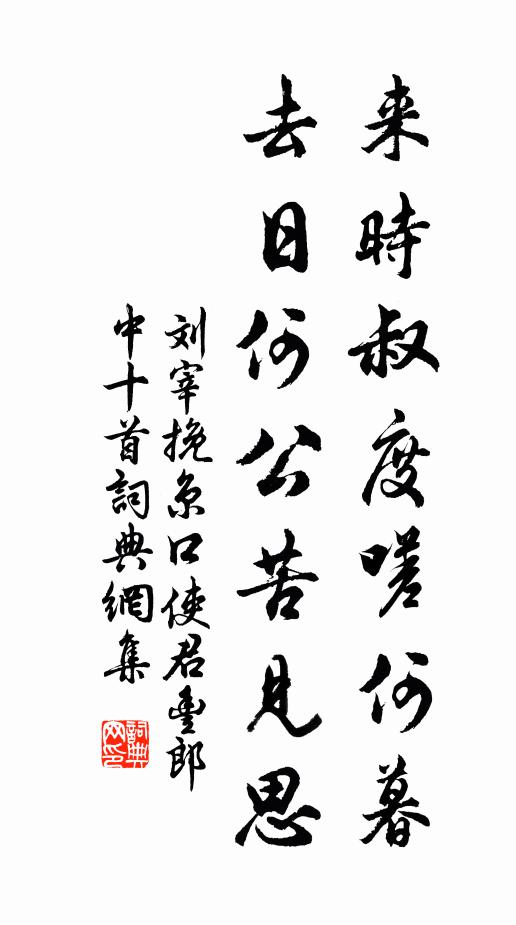 来時叔度嗟何暮
去日何公苦見思
刘宰挽京口使君豊郎
中十首詞典網集
詞典